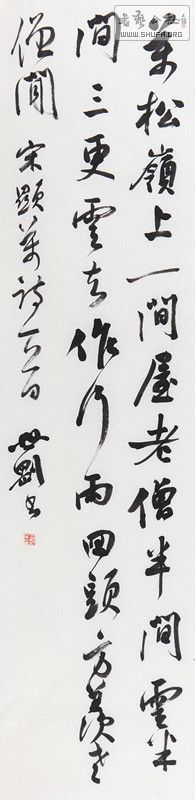 書藝公社
WWW.SHUFA.ORG
萬松嶺上一間屋老僧半間雲半
間三更雲去作行雨回頭方羨老
僧閒 宋顯萬詩一首 世剛书